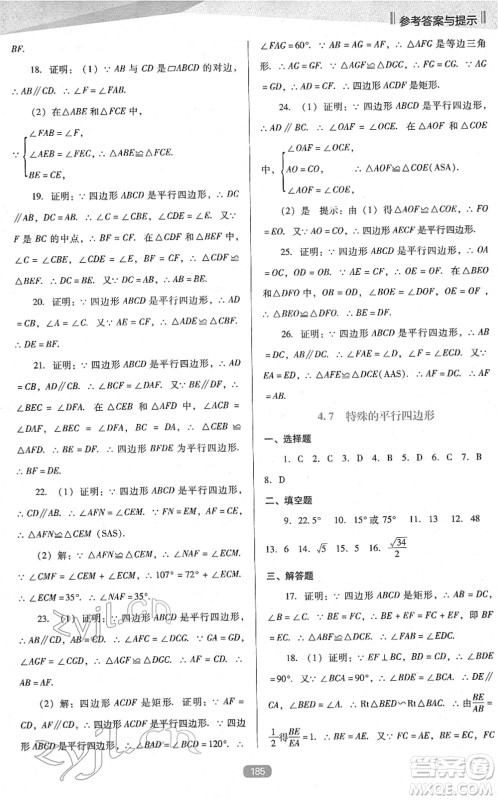 参考答案与提示
BF.
18. 证明：(1) ∵ AB 与 CD 是▱ABCD 的对边，
∴ AB∥CD. ∴ ∠F = ∠FAB.
(2) 在△ABE 和△FCE 中，
∠FAB = ∠F，
∵ ∠AEB = ∠FEC, ∴ △ABE≌△FCE.
BE = CE,
19. 证明：∵ 四边形 ABCD 是平行四边形，∴ DC
∥AB, DC = AB. ∴ ∠C = ∠EBF, ∠CDE = ∠E. 又∵
F 是 BC 的中点，∴ BF = CF. 在△CDF 和△BEF 中，
∠C = ∠EBF, ∠CDE = ∠E, CF = BF, ∴ △CDF≌
△BEF. ∴ DC = BE. 又∵ DC = AB, ∴ AB = BE.
20. 证明：∵ 四边形 ABCD 是平行四边形，∴ AD
= CB, ∠A = ∠C. 又∵ AE = CF, ∴ △ADE≌△CBF.
∴ DE = BF.
21. 证明：∵ 四边形 ABCD 是平行四边形，∴ AD
= CB, AD∥BC. ∴ ∠BCF = ∠DAF. 又∵ BE∥DF, ∴
∠BEC = ∠DFA. ∴ 在△CEB 和△AFD 中，∠BCF =
∠DAF, ∠BEC = ∠DFA, CB = AD, ∴ △CEB≌△
AFD. ∴ BE = DF. ∴ 四边形 BFDE 是平行四边形.
∴ BF = DE.
22. (1) 证明：∵ 四边形 ABCD 是平行四边形，
∴ CD∥AB. ∴ ∠AFN = ∠CEM. ∵ FN = EM, AF = CE,
∴ △AFN≌△CEM (SAS).
(2) 解：∵ △AFN≌△CEM, ∴ ∠NAF = ∠ECM.
∵ ∠CMF = ∠CEM + ∠ECM, ∴ 107° = 72° + ∠ECM.
∴ ∠ECM = 35°. ∴ ∠NAF = 35°.
23. (1) 证明：∵ 四边形 ABCD 是平行四边形，
∴ AB∥CD, AB = CD. ∴ ∠AFC = ∠DCG. ∵ GA = GD,
∠AGF = ∠CGD, ∴ △AGF≌△DGC. ∴ AF = CD.
∴ AB = AF.
(2) 解：四边形 ACDF 是矩形. 证明：∵ AF =
CD, AF∥CD, ∴ 四边形 ACDF 是平行四边形. ∵ 四
边形 ABCD 是平行四边形，∴ ∠BAD = ∠BCD = 120°. ∴
∠FAG = 60°. ∵ AB = AG = AF, ∴ △AFG 是等边三角
形. ∴ AG = GF. ∴ AD = CF. ∴ 四边形 ACDF 是矩形.
24. (1) 证明：∵ 四边形 ABCD 是平行四边形，
∴ AD∥BC. ∴ ∠OAF = ∠OCE. ∴ 在△OAF 和△OCE
∠OAF = ∠OCE,
中， AO = CO, ∴ △AOF≌△COE(ASA).
∠AOF = ∠COE,
(2) 是 提示：由 (1) 得△AOF≌△COE, ∴ FO
= EO. 又∵ AO = CO, ∴ 四边形 AECF 是平行四边形.
25. 证明：∵ 四边形 ABCD 是平行四边形，∴ OA
= OC, OB = OD. ∵ AF = CE, ∴ OE = OF. 在△BEO
和△DFO 中，OB = OD, ∠BOE = ∠DOF, OE = OF,
∴ △BEO≌△DFO. ∴ BE = DF.
26. 证明：∵ 四边形 ABCD 是平行四边形，∴ AB
∥CD, AB = CD. ∴ ∠F = ∠DCE. 又∵ AE = DE, ∠AEF
= ∠DEC, ∴ △AFE≌△DCE(AAS). ∴ AF = DC. ∴ AF
= AB.
4.7 特殊的平行四边形
一、选择题
1. C 2. C 3. D 4. A 5. B 6. C 7. D
8. D
二、填空题
9. 22.5° 10. 15°或75° 11. 13 12. 48
13. 6 14. √5 15. 16. √34/2
三、解答题
17. 证明：∵ 四边形 ABCD 是矩形，∴ AB = DC,
∠B = ∠C = 90°. ∵ BF = CE, ∴ BE + EF = EF + FC, 即
BE = FC. ∴ △ABE≌△DCF. ∴ AE = DF.
18. (1) 证明：∵ EF⊥BC, ∴ ∠BED = ∠BCA
= 90°. ∵ ∠B + ∠BAC = 90°, ∠B + ∠BDE = 90°, ∴ ∠BDE =
∠CAB, ∠BED = 90°. ∴ Rt△BED∽Rt△BCA. ∴ 由BE/EA =
1/2得BE/EA = 1. ∴ BE = AE. 又∵ FC = FA, FE = FE,
185